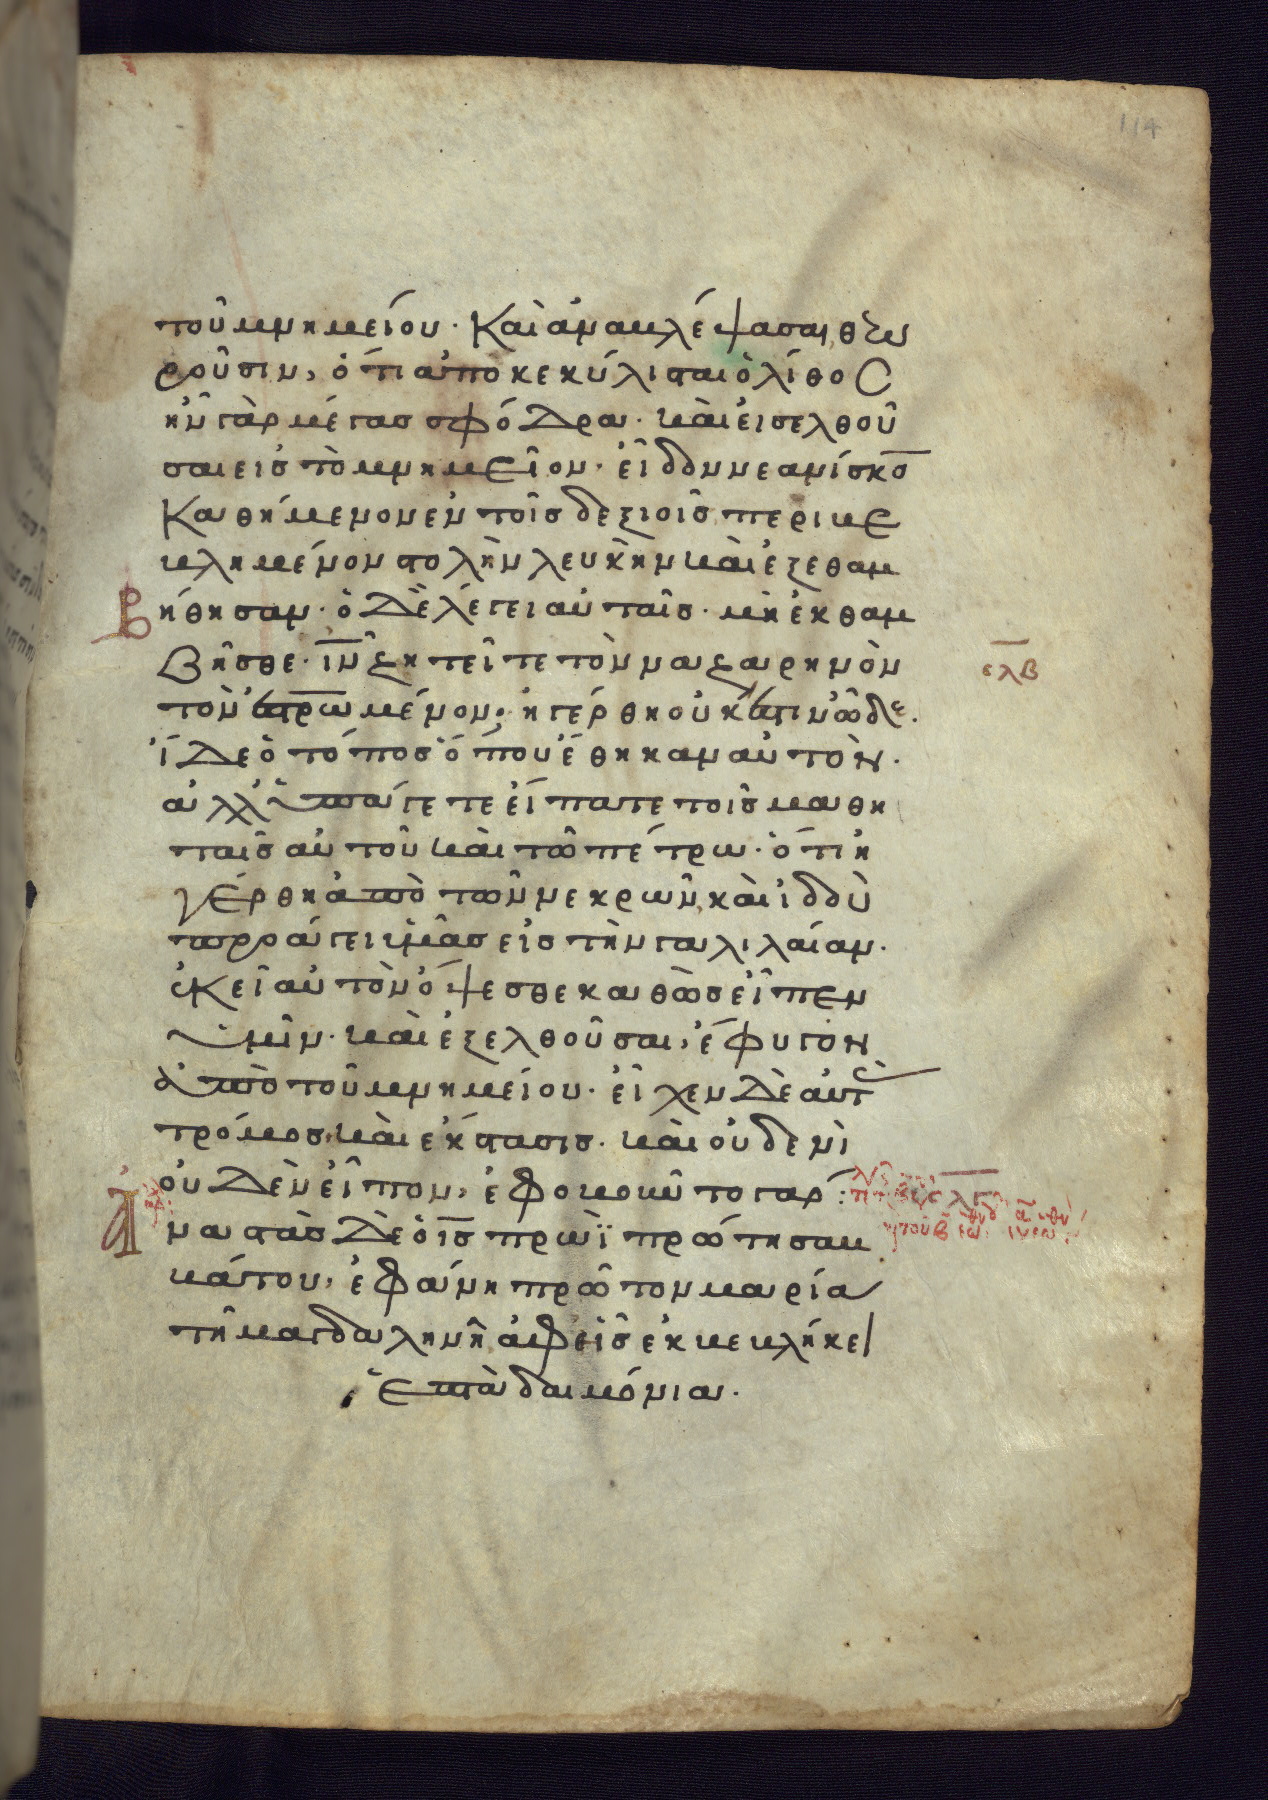 114
τοῦ μνημείου· Καὶ ἀναβλέψασαι θεω
ροῦσιν, ὅτι ἀποκεκύλισται ὁ λίθοC
ἦν γὰρ μέγας σφόδρα· καὶ εἰσελθοῦ
σαι εἰς τὸ μνημεῖον, εἶδον νεανίσκο̅
Καθήμενον ἐν τοῖς δεξιοῖς περιβε
βλημένον στολὴν λευκὴν καὶ ἐξεθαμ
Βήθησαν· ὁ δὲ λέγει αὐταῖς· μὴ ἐκθαμ
βῆσθε· ι̅ν̅ ζητεῖτε τὸν ναζαρηνὸν
τὸν ἐστρωμένον· ἠγέρθη οὐκ ἔστιν ὧδε.
ἴδε ὁ τόπος ὅπου ἔθηκαν αὐτὸν.
ἀλλ' ὑπάγετε εἴπατε τοῖς μαθη
ταῖς αὐτοῦ καὶ τῶ πέτρω· ὅτι ἠ
γέρθη ἀπὸ τῶν νεκρῶν, καὶ ἰδοὺ
προάγει ὑμᾶς εἰς τὴν γαλιλαίαν.
ἐκεῖ αὐτὸν ὄψεσθε καθὼς εἶπεν
ὑμῖν. καὶ ἐξελθοῦσαι, ἔφυγον
ἀπὸ τοῦ μνημείου. εἶχεν δὲ αὐτὰς
τρόμος καὶ ἔκστασις. καὶ οὐδενὶ
οὐδὲν εἶπον, ἐφοβοῦντο γάρ:
Ἀναστὰς δὲ ὁ ι̅ς̅ πρωῒ πρώτη σαβ
βάτου, ἐφάνη πρῶτον μαρία
τῆ μαγδαληνῆ ἀφ' εἷς ἐκβεβλήκει
ἑπτὰ δαιμόνια.
σλβ